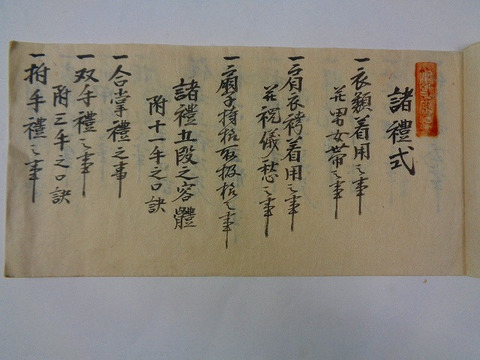 諸禮式
一衣類着用之事
並男女帯之事
一肩衣袴着用之事
並祝儀愁之事
一扇子持様取扱様之事
諸禮五段之容體
附十一手之口訣
一合掌禮之事
一双手禮之事
附三手之口訣
一拍手禮之事